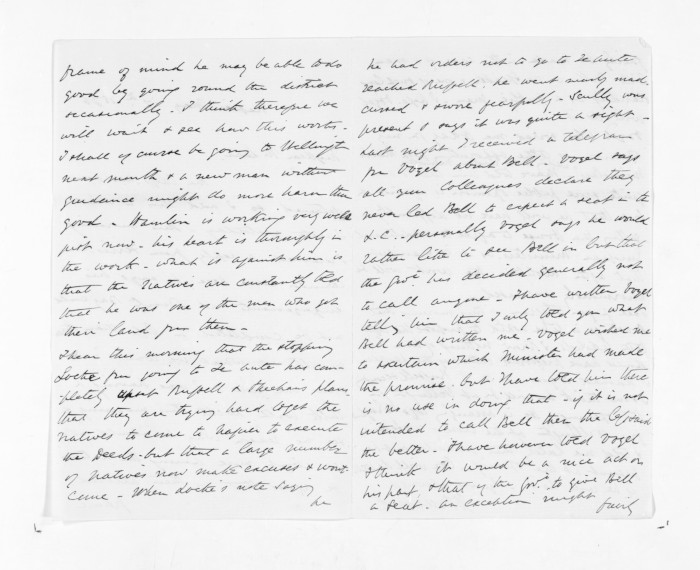 frame of mind he may be able to do
good by going round the district
occasionally. I think therefore we
will wait & see how this works.
I shall of course be going to Wellington
next month & a new man without
guidance might do more harm than
good. Hamlin is working very well
just now. his heart is thoroughly in
the work. what is against him is
that the Natives are constantly told
that he was one of the men who got
their land from them.
I hear this morning that the stopping
Locke from going to Te Aute has com-
pletely upset Russell & Sheehan's plans
that they are trying hard to get the
natives to come to Napier to execute
the Deeds. but that a large number
of natives now make excuses & wont
come. When Locke's note saying
he
he had orders not to go to Te Aute
reached Russell. he went nearly mad.
cursed & swore fearfully. Scully was
present & says it was quite a sight.
Last night I received a telegram
from Vogel about Bell. Vogel says
all your Colleagues declare they
never led Bell to expect a seat in the
L.C. personally Vogel says he would
rather like to see Bell in but that
the Govt. has decided generally not
to call anyone. I have written Vogel
telling him that I only told you what
Bell had written me. Vogel wished me
to ascertain which Minister had made
the promise. but I have told him there
is no use in doing that. if it is not
intended to call Bell then the less said
the better. I have however told Vogel
I think it would be a nice act on
his part, & that of the Govt. to give Bell
a seat. an exception might fairly